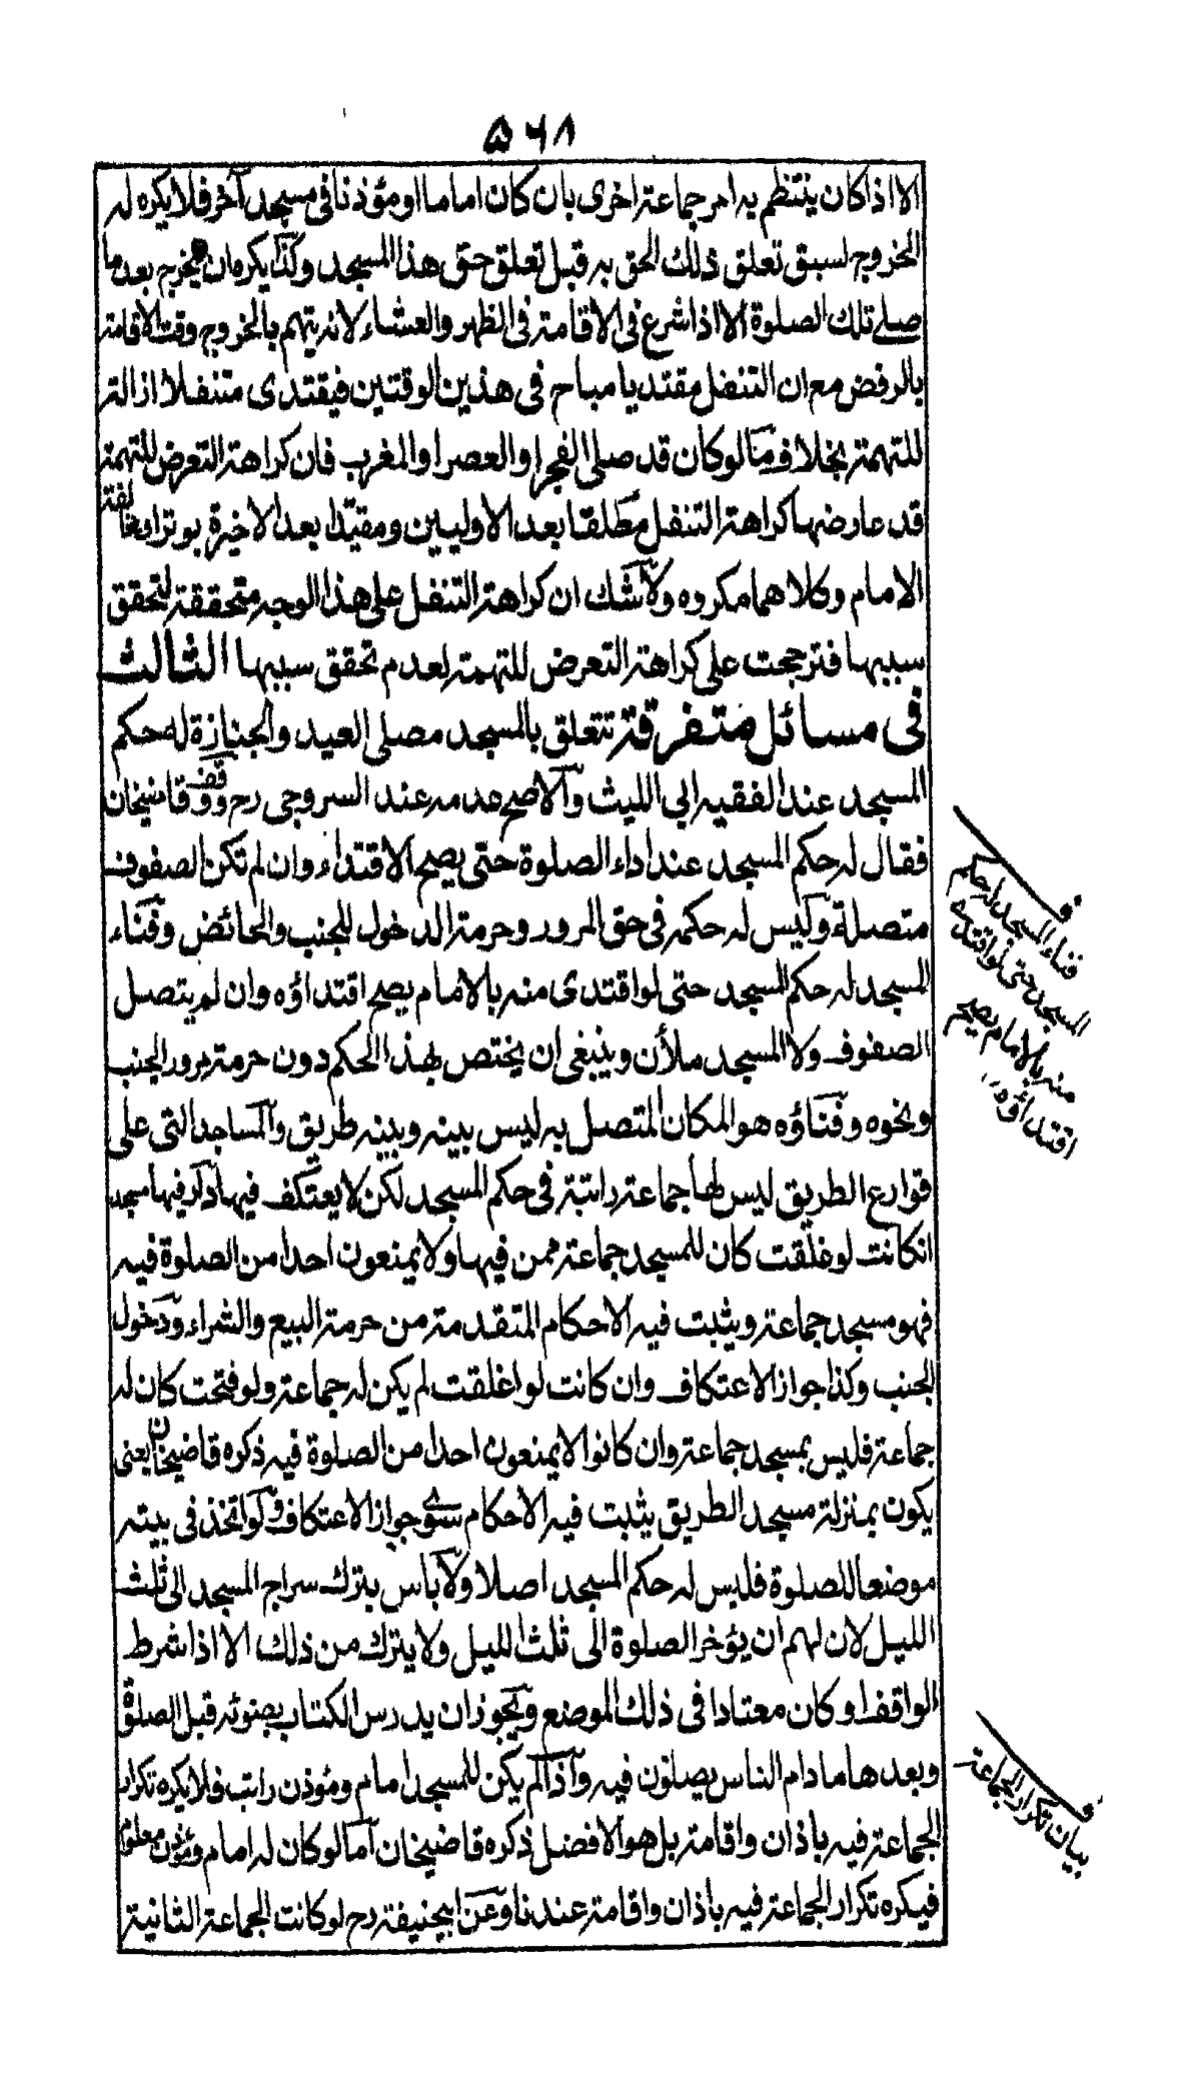 ۵۶۸
الا اذا كان ينتظم به امر جماعة اخرى بان كان اماما او مؤذنا فى مسجد آخر فلا يكره له
الخروج لسبق تعلق ذلك الحق به قبل تعلق حق هذا المسجد وكذا يكره ان يخرج بعد ما
صلے تلك الصلوة الا اذا شرع فى الاقامة فى الظهر والعشاء لانه يتهم بالخروج وقت الاقامة
بالرفض مع ان التنفل مقتديا مباح فى هذين الوقتين فيقتدى متنفلا ازالة
للتهمة بخلاف ما لو كان قد صلى الفجر او العصر او المغرب فان كراهة التعرض للتهمة
قد عارضها كراهة التنفل مطلقا بعد الاوليين ومقيدا بعد الاخيرة بوتر او مخالفة
الامام وكلاهما مكروه ولا شك ان كراهة التنفل على هذا الوجه متحققة لتحقق
سببها فترجحت على كراهة التعرض للتهمة لعدم تحقق سببها الثالث
فى مسائل متفرقة تتعلق بالمسجد مصلى العيد والجنازة له حكم
المسجد عند الفقيه ابى الليث والاصح عدمه عند السروجى رح ووفق قاضيخان
فقال له حكم المسجد عند اداء الصلوة حتى يصح الاقتداء وان لم تكن الصفوف
متصلة وليس له حكمه فى حق المرور وحرمة الدخول للجنب والحائض وفناء
المسجد له حكم المسجد حتى لو اقتدى منه بالامام يصح اقتداؤه وان لم يتصل
الصفوف ولا المسجد ملأن وينبغى ان يختص بهذا الحكم دون حرمة مرور الجنب
ونحوه وفناؤه هو المكان المتصل به ليس بينه وبينه طريق والمساجد التى على
قوارع الطريق ليس لها جماعة راتبة فى حكم المسجد لكن لا يعتكف فيها دار فيها مسجد
انكانت لو غلقت كان للمسجد جماعة ممن فيها ولا يمنعون احدا من الصلوة فيه
فهو مسجد جماعة ويثبت فيه الاحكام المتقدمة من حرمة البيع والشراء ودخول
الجنب وكذا جواز الاعتكاف وان كانت لو اغلقت لم يكن له جماعة ولو فتحت كان له
جماعة فليس بمسجد جماعة وان كانوا لا يمنعون احدا من الصلوة فيه ذكره قاضيخان يعنى
يكون بمنزلة مسجد الطريق يثبت فيه الاحكام سوى جواز الاعتكاف ولو اتخذ فى بيته
موضعا للصلوة فليس له حكم المسجد اصلا ولا باس بترك سراج المسجد الى ثلث
الليل لان لهم ان يؤخر الصلوة الى ثلث الليل ولا يترك من ذلك الا اذا شرط
الواقف او كان معتادا فى ذلك الموضع ويجوز ان يدرس الكتاب بضوئه قبل الصلوة
وبعدها ما دام الناس يصلون فيه واذا لم يكن للمسجد امام ومؤذن راتب فلا يكره تكرار
الجماعة فيه باذان واقامة بل هو الافضل ذكره قاضيخان اما لو كان له امام ومؤذن معلوم
فيكره تكرار الجماعة فيه باذان واقامة عندنا وعن ابيحنيفة رح لو كانت الجماعة الثانية
ف
فناء المسجد له حكم
المسجد حتى لو اقتدے
منه بالامام يصح
اقتداؤه
ف
بيان تكرار الجماعة